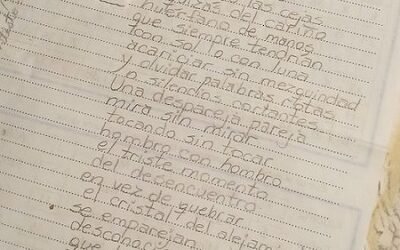 las cejas
del cariño
huérfano de manos
que siempre tendrían
con sol o con luna
acariciar sin mezquindad
y olvidar palabras rotas
o silencios cortantes.
Una despareja pareja
mira sin mirar
tocando sin tocar
hombro con hombro
el triste momento
del desencuentro
en vez de quebrar
el cristal
del
se emparejan
que